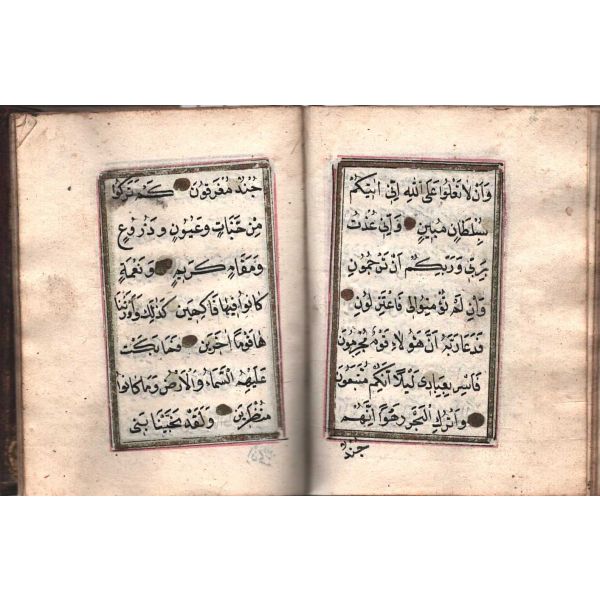 وَاَنْ لَا تَعْلُوا عَلَى اللّٰهِ اِنّٖى اٰتٖيكُمْ
بِسُلْطَانٍ مُبٖينٍ وَاِنّٖى عُذْتُ
بِرَبّٖى وَرَبِّكُمْ اَنْ تَرْجُمُونِ
وَاِنْ لَمْ تُؤْمِنُوا لٖى فَاعْتَزِلُونِ
فَدَعَا رَبَّهُ اَنَّ هٰؤُلَاءِ قَوْمٌ مُجْرِمُونَ
فَاَسْرِ بِعِبَادٖى لَيْلًا اِنَّكُمْ مُتَّبَعُونَ
وَاتْرُكِ الْبَحْرَ رَهْوًا اِنَّهُمْ
جُنْدٌ
جُنْدٌ مُغْرَقُونَ كَمْ تَرَكُوا
مِنْ جَنَّاتٍ وَعُيُونٍ وَزُرُوعٍ
وَمَقَامٍ كَرٖيمٍ وَنَعْمَةٍ
كَانُوا فٖيهَا فَاكِهٖينَ كَذٰلِكَ وَاَوْرَثْنَا
هَا قَوْمًا اٰخَرٖينَ فَمَا بَكَتْ
عَلَيْهِمُ السَّمَاءُ وَالْاَرْضُ وَمَا كَانُوا
مُنْظَرٖينَ وَلَقَدْ نَجَّيْنَا بَنٖى